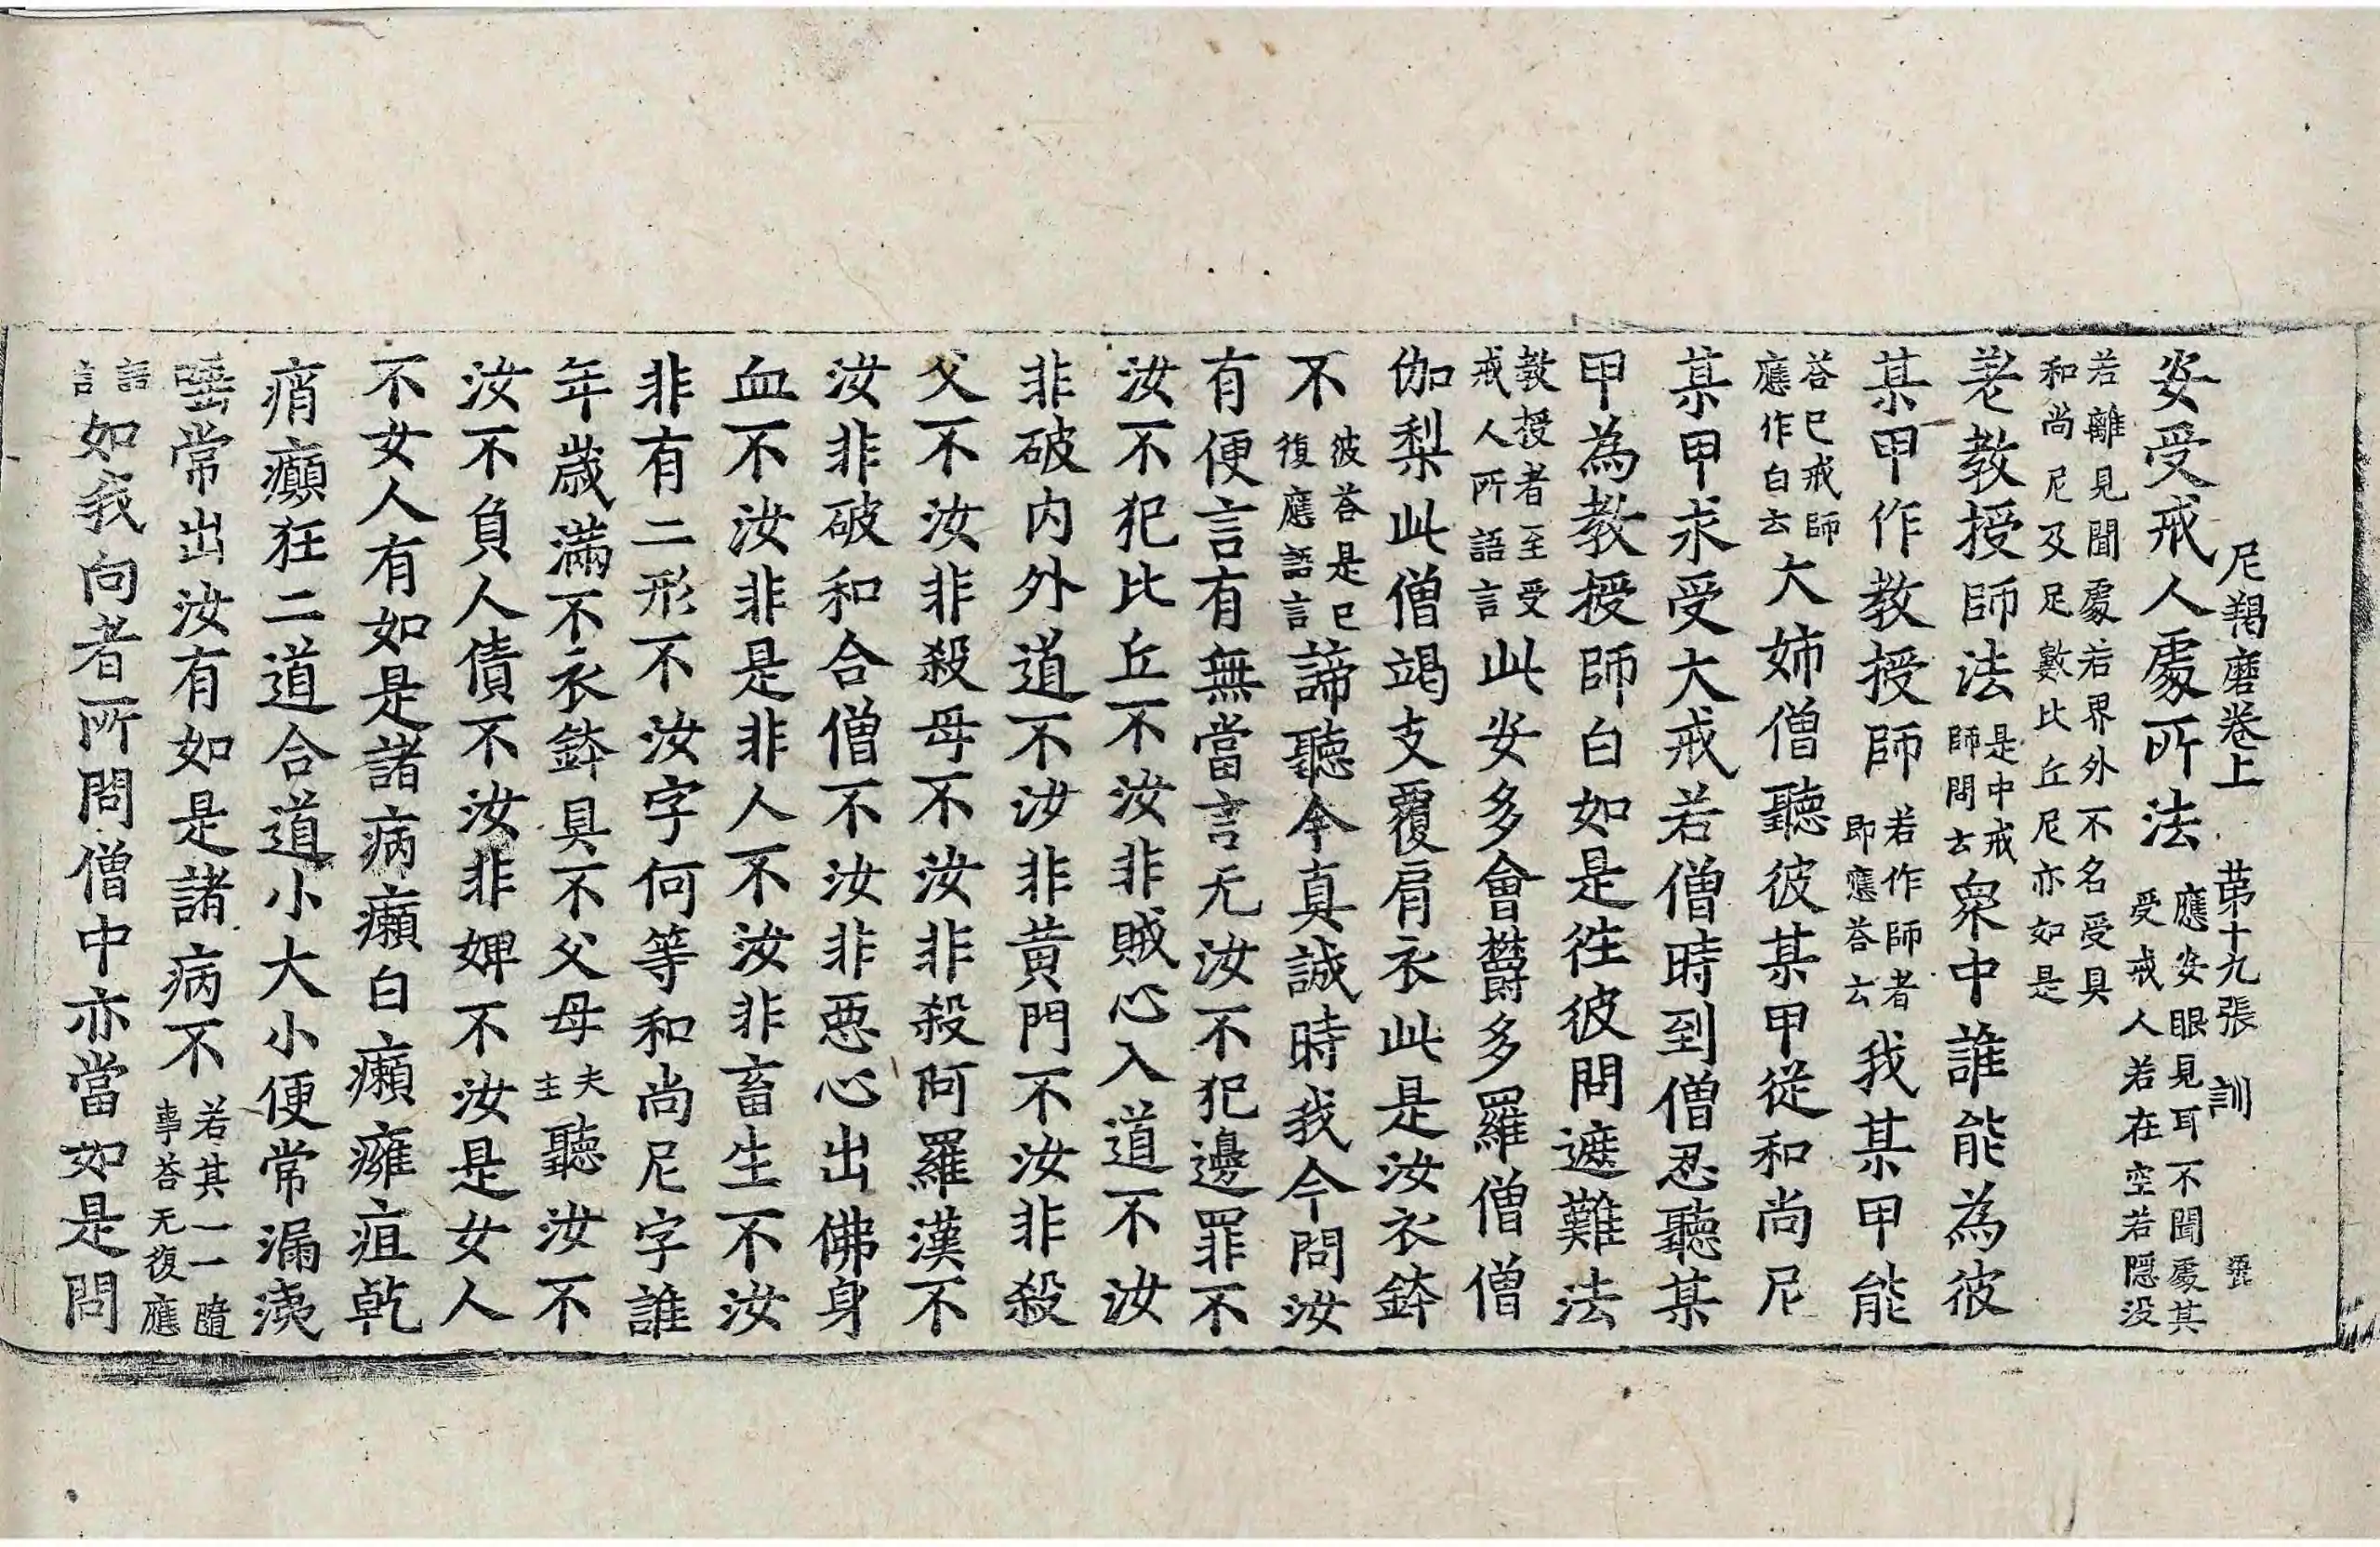 尼羯磨卷上　第十九張　訓
安受戒人處所法應安眼見耳不聞處其受戒人若在空若隠没
若離見聞處若界外不名受具和尚尼及足數比丘尼亦如是
差教授師法是中戒師問云衆中誰能為彼
某甲作教授師若作師者即應荅云我某甲能
荅已戒師應作白云大姉僧聽彼某甲從和尚尼
某甲求受大戒若僧時到僧忍聽某
甲為教授師白如是徃彼問遮難法
教授者至受戒人所語言此安多會欝多羅僧僧
伽梨此僧竭支覆肩衣此是汝衣鉢
不彼荅是已復應語言諦聽今真誠時我今問汝
有便言有無當言无汝不犯邊罪不
汝不犯比丘不汝非賊心入道不汝
非破内外道不汝非黄門不汝非殺
父不汝非殺母不汝非殺阿羅漢不
汝非破和合僧不汝非惡心出佛身
血不汝非是非人不汝非畜生不汝
非有二形不汝字何等和尚尼字誰
年歳滿不衣鉢具不父母夫主聽汝不
汝不負人債不汝非婢不汝是女人
不女人有如是諸病癩白癩癰疽乾
痟癲狂二道合道小大小便常漏洟
唾常出汝有如是諸病不若其一一隨事荅无復應
語言如我向者所問僧中亦當如是問